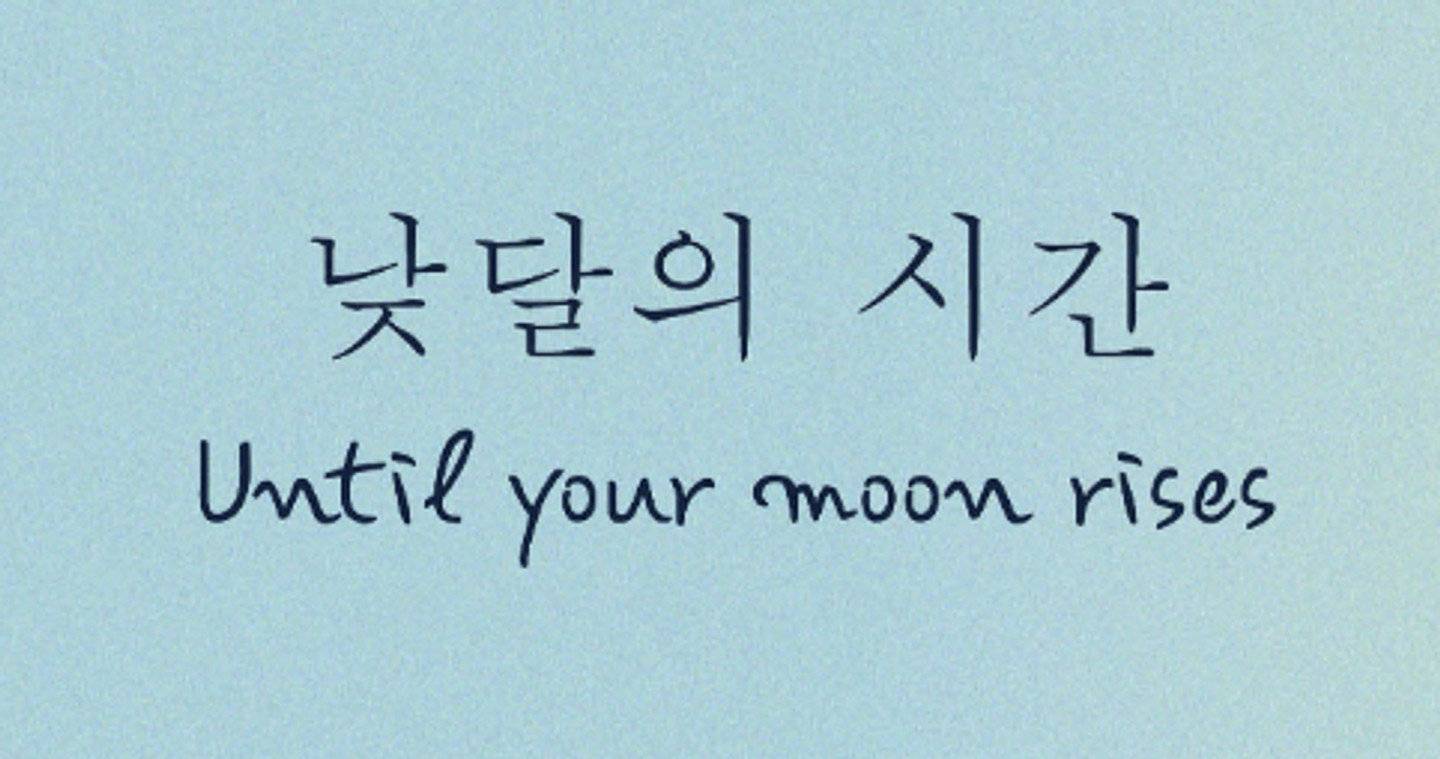 낮달의 시간
Until your moon rises